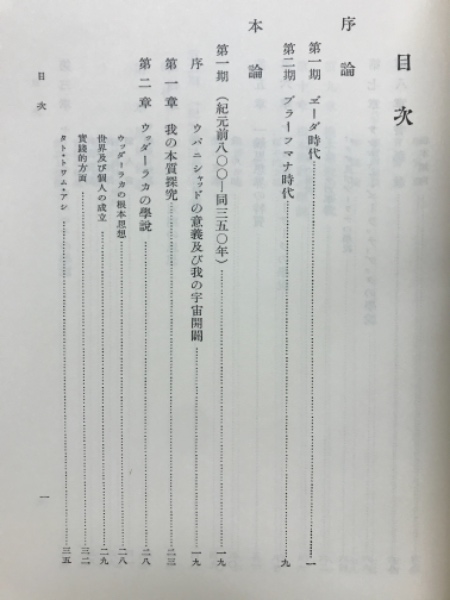 目次
序論
第一期 ヱーダ時代……一
第二期 ブラーフマナ時代……九
本論
第一期(紀元前八〇〇―同三五〇年)……一九
序 ウパニシャッドの意義及び我の宇宙開闢……一九
第一章 我の本質探究……二三
第二章 ウッダーラカの學說……二八
ウッダーラカの根本思想……二八
世界及び個人の成立……二九
實踐的方面……三二
タト・トワム・アシ……三五
目次
一